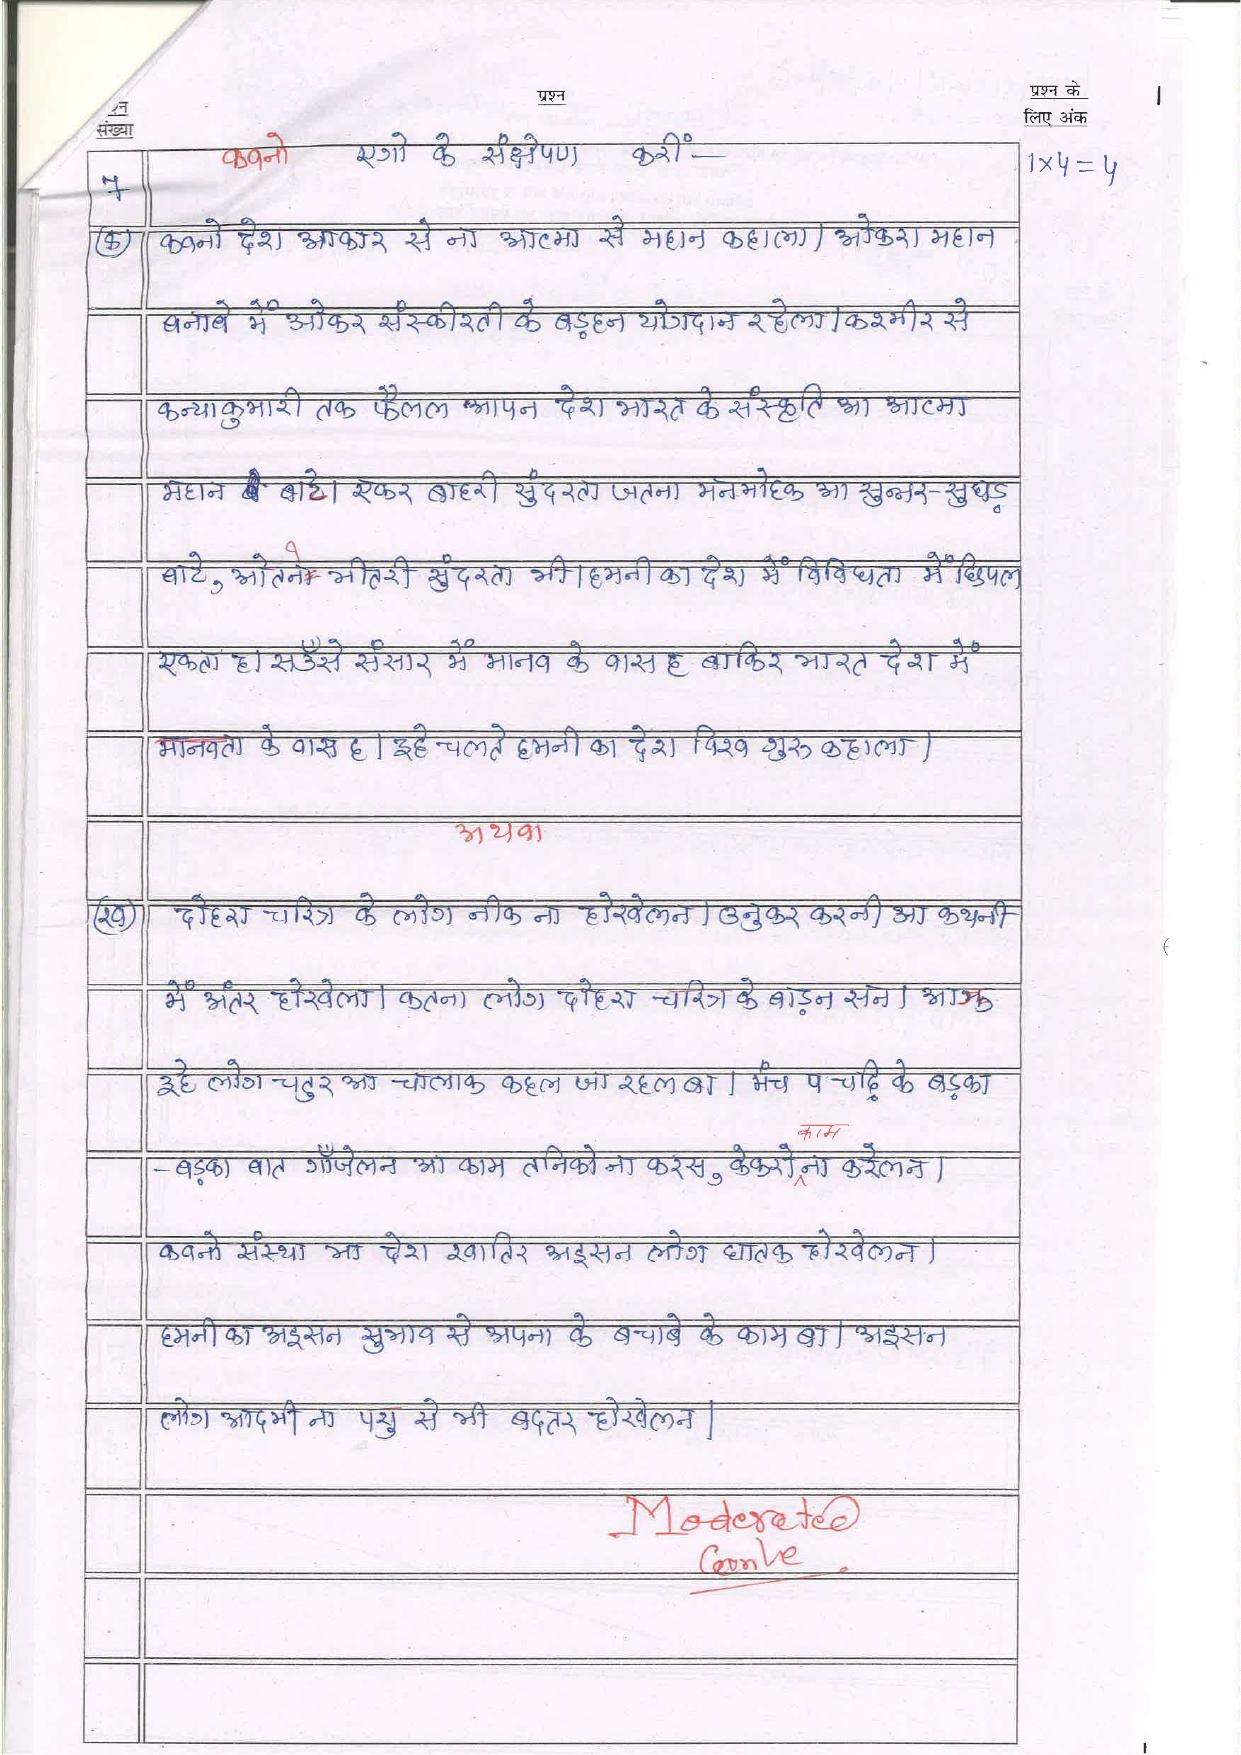 प्रश्न
प्रश्न के
लिए अंक
संख्या
1×4=4
7
कवनो एगो के संक्षेपण करीं—
(क) कवनो देश आकार से ना आत्मा से महान कहाला। ओकरा महान
बनावे में ओकर संस्कीरती के बड़हन योगदान रहेला। कश्मीर से
कन्याकुमारी तक फैलल आपन देश भारत के संस्कृति आ आत्मा
महान बाटे। एकर बाहरी सुंदरता जतना मनमोहक आ सुन्नर-सुघड़
बाटे, ओतने भीतरी सुंदरता भी। हमनी का देश में विविधता में छिपल
एकता ह। सउँसे संसार में मानव के वास ह बाकिर भारत देश में
मानवता के वास ह। इहे चलते हमनी का देश विश्व गुरू कहाला।
अथवा
(ख) दोहरा चरित्र के लोग नीक ना होखेलन। उनुकर करनी आ कथनी
में अंतर होखेला। कतना लोग दोहरा चरित्र के बाड़न सन। आज
इहे लोग चतुर आ चालाक कहल जा रहल बा। मंच प चढ़ि के बड़का
-बड़का बात गाँजेलन आ काम तनिको ना करस, केकरो काम ना करेलन।
कवनो संस्था भा देश खातिर अइसन लोग घातक होखेलन।
हमनी का अइसन सुभाव से अपना के बचावे के काम बा। अइसन
लोग आदमी ना पशु से भी बदतर होखेलन।
Moderated